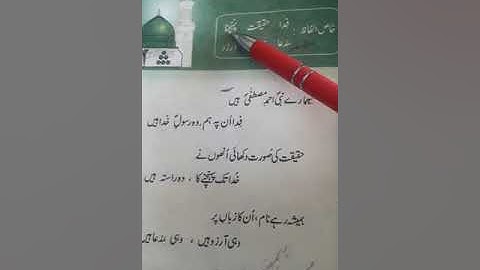 خاص الفاظ : فدا حقیقت پہنچنا
مدعا آرزو
ہمارے نبیؐ احمدِ مصطفیٰؐ ہیں
فِدا اُن پہ ہم، وہ رسولِؐ خُدا ہیں
حقیقت کی صُورت دکھائی اُنھوں نے
خُدا تک پہنچنے کا، وہ راستہ ہیں
ہمیشہ رہے نام، اُن کا زباں پر
وہی آرزو ہیں، وہی مُدعا ہیں